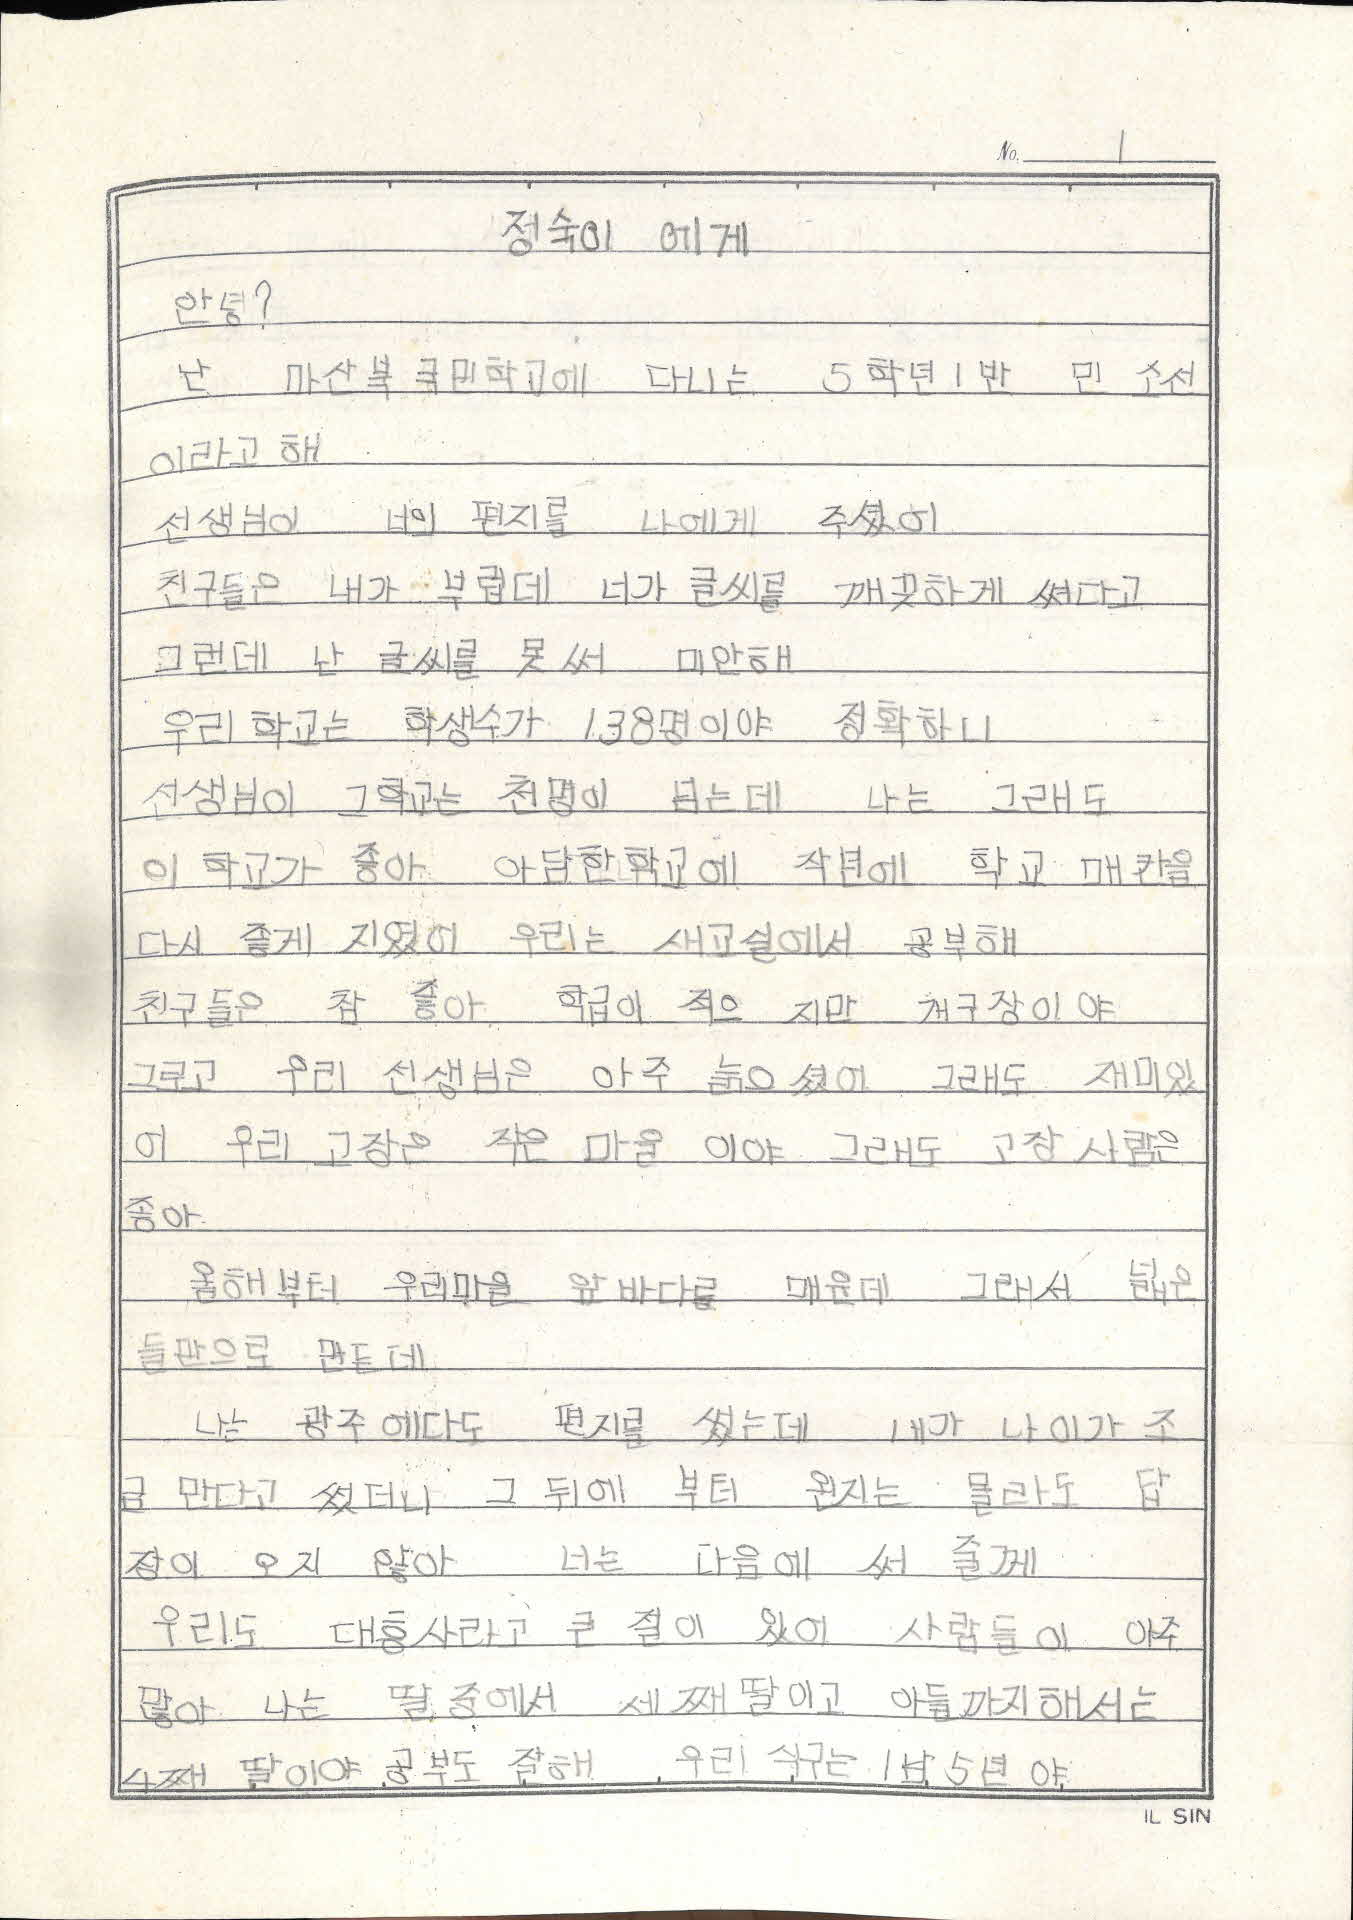 No. 1
정숙이 에게
안녕?
난 마산북국민학교에 다니는 5학년1반 민 소선
이라고 해
선생님이 너의 편지를 나에게 주셨어
친구들은 내가 부럽데 너가 글씨를 깨끗하게 써다고
그런데 난 글씨를 못 써 미안해
우리 학교는 학생수가 138명이야 정확하니
선생님이 그학교는 천명이 넘는데 나는 그래도
이 학교가 좋아 아담한학교에 작년에 학교 매칸을
다시 좋게 지였어 우리는 새교실에서 공부해
친구들은 참 좋아 학급이 적으 지만 개구장이야
그로고 우리 선생님은 아주 늙으셨어 그래도 재미있
어 우리 고장은 작은 마을 이야 그래도 고장 사람은
좋아
올해부터 우리마을 앞바다를 매운데 그래서 넓은
들판으로 만든데
나는 광주에다도 편지를 썼는데 내가 나이가 조
금 만다고 썼더니 그 뒤에 부터 왼지는 몰라도 답
장이 오지 않아 너는 다음에 써 줄께
우리도 대흥사라고 큰 절이 있어 사람들이 아주
많아 나는 딸 중에서 세째딸이고 아들까지해서는
4째 딸이야 공부도 잘해 우리 식구는 1남 5년 야
IL SIN